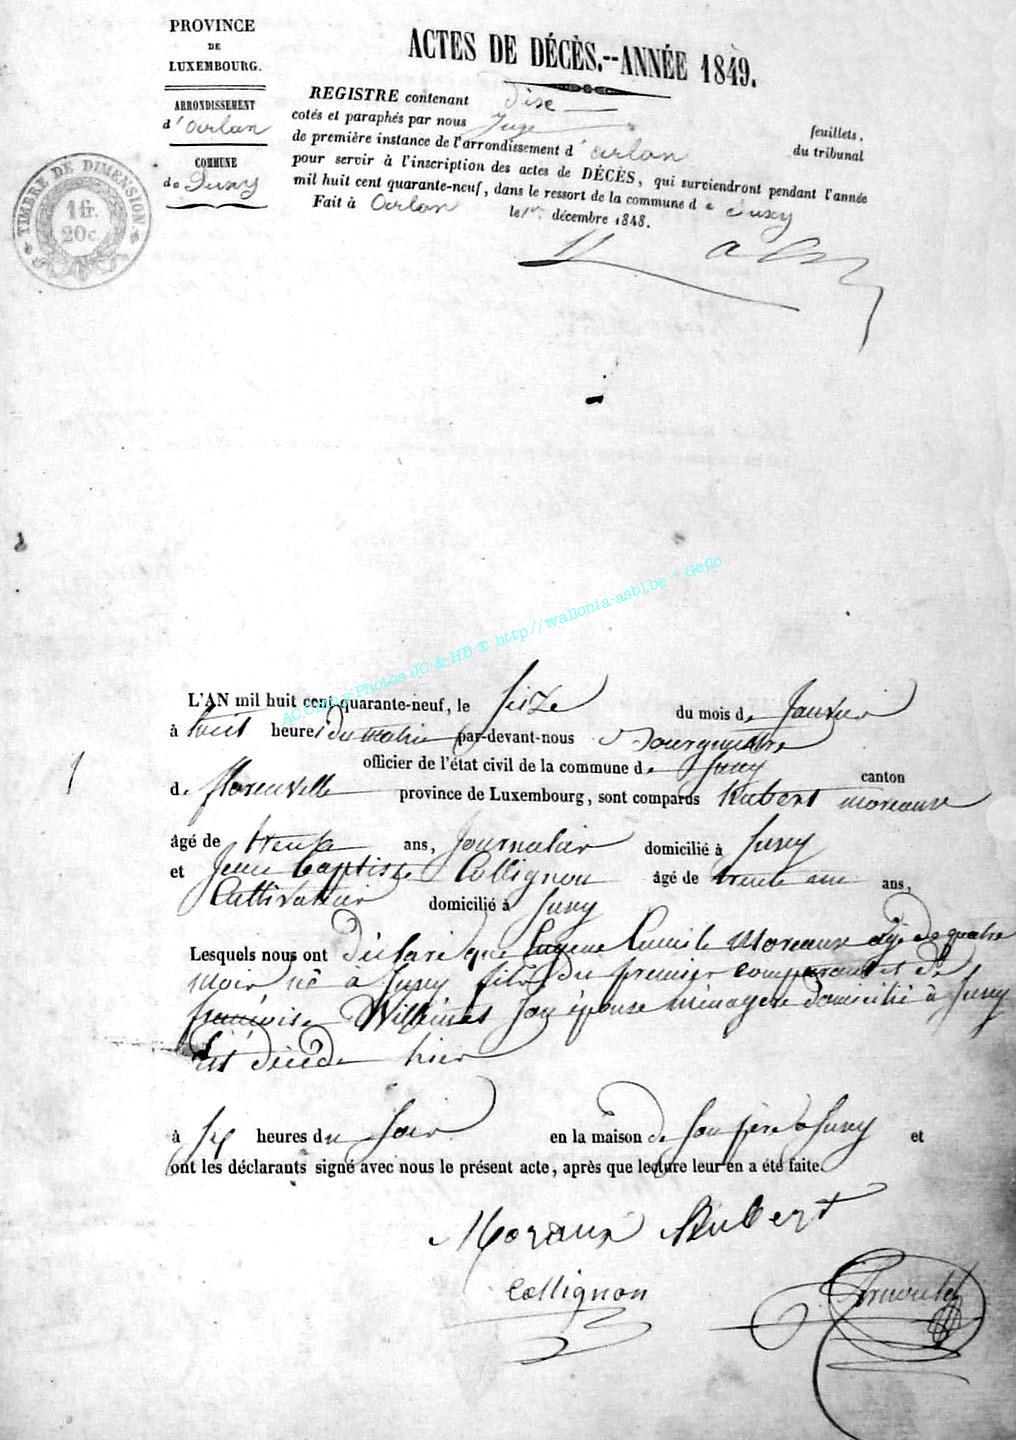 PROVINCE
DE
LUXEMBOURG.
ARRONDISSEMENT
d'arlon
COMMUNE
de Suxy
TIMBRE DE DIMENSION
1 fr.
20 c.
ACTES DE DÉCÈS.--ANNÉE 1849.
REGISTRE contenant dixe feuillets,
cotés et paraphés par nous Juge du tribunal
de première instance de l'arrondissement d'arlon
pour servir à l'inscription des actes de DÉCÈS, qui surviendront pendant l'année
mil huit cent quarante-neuf, dans le ressort de la commune de Suxy
Fait à Arlon le 1er décembre 1848.
AC Chiny Photos JC & HB ® http//wallonia-asbl.be - Geflo
1
L'AN mil huit cent quarante-neuf, le seize du mois de Janvier
à huit heures du matin par-devant-nous
officier de l'état civil de la commune de Suxy canton
de florenville province de Luxembourg, sont comparus hubert moreaux
âgé de trente ans, Journalier domicilié à Suxy
et Jean baptiste Collignon âgé de trente ans,
Cultivateur domicilié à Suxy
Lesquels nous ont déclaré que Eugene Camile Moreaux agé de quatre
mois né à Suxy fils du premier comparant et de
françoise son épouse ménagere domicilié à Suxy
est décédé hier
à six heures du soir en la maison de son père à Suxy et
ont les déclarants signé avec nous le présent acte, après que lecture leur en a été faite.
Moraux Hubert
Collignon